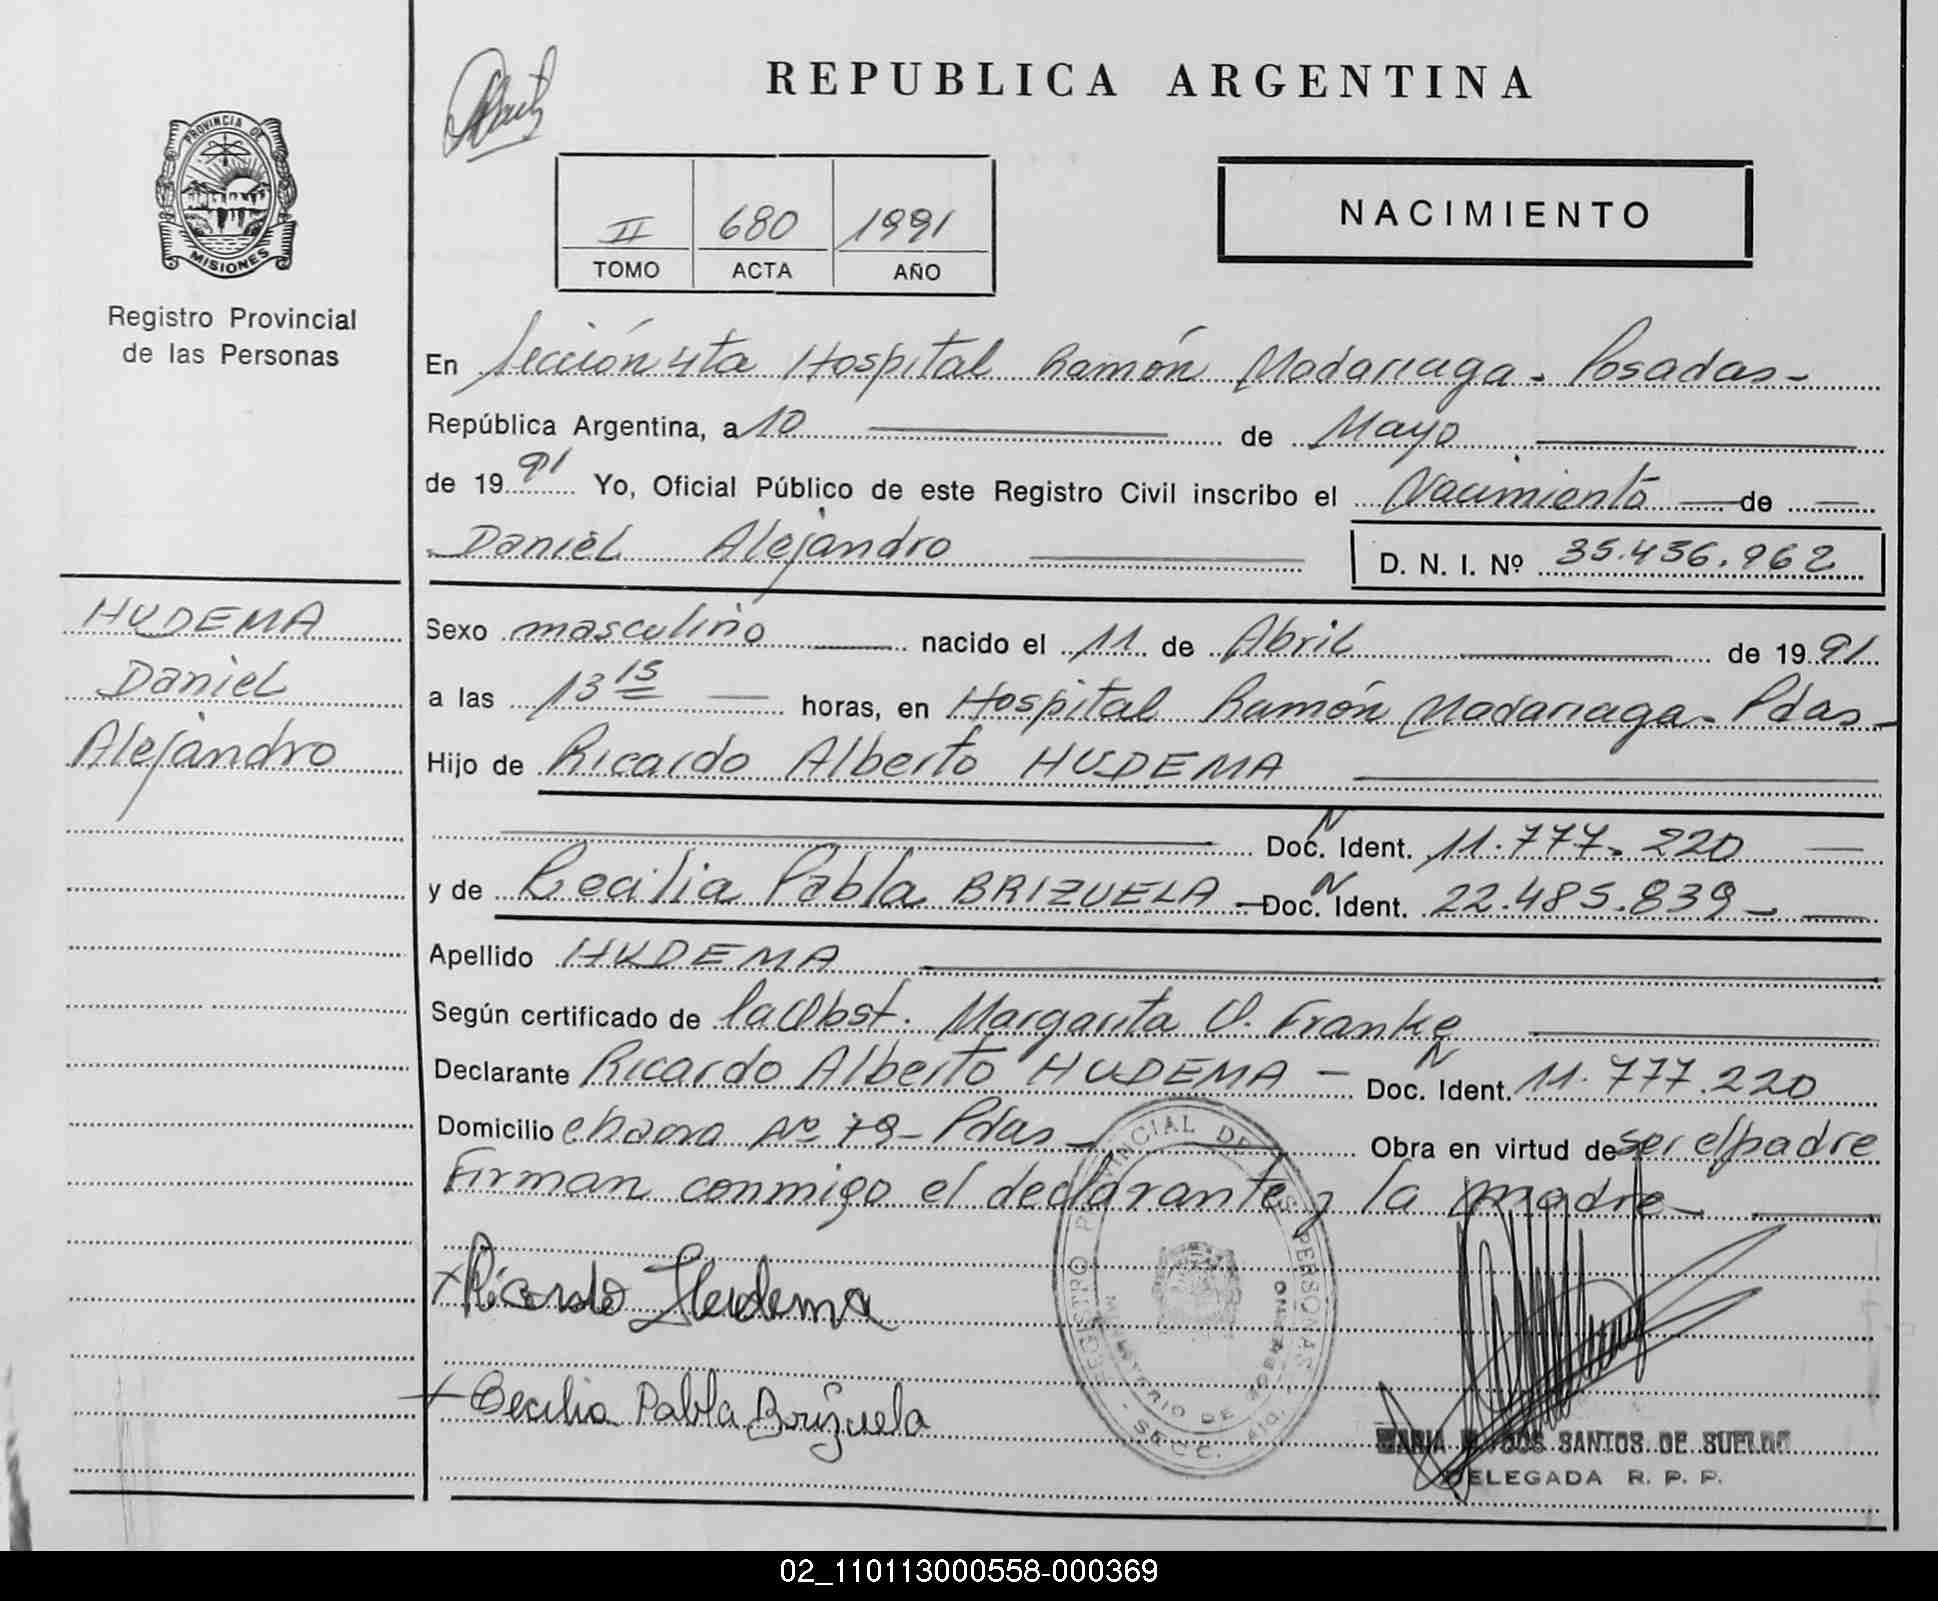 REPUBLICA ARGENTINA
PROVINCIA DE
MISIONES
Registro Provincial
de las Personas
II 680 1991
TOMO ACTA AÑO
NACIMIENTO
En Sección 4ta Hospital Ramón Madariaga - Posadas -
República Argentina, a 10 de Mayo
de 1991 Yo, Oficial Público de este Registro Civil inscribo el Nacimiento de
Daniel Alejandro D. N. I. Nº 35.436.962
HUDEMA
Daniel
Alejandro
Sexo masculino nacido el 11 de Abril de 1991
a las 13 15 horas, en Hospital Ramón Madariaga - Pdas -
Hijo de Ricardo Alberto HUDEMA
Doc. N. Ident. 11.777.220
y de Cecilia Pabla BRIZUELA - Doc. N. Ident. 22.485.839 -
Apellido HUDEMA
Según certificado de la Obst. Margarita O. Franke
Declarante Ricardo Alberto HUDEMA - Doc. N. Ident. 11.777.220
Domicilio chacra Nº 79 - Pdas - Obra en virtud de ser el padre
Firman conmigo el declarante y la madre -
REGISTRO PROVINCIAL DE LAS PERSONAS
MINISTERIO DE GOBIERNO
SECC.
x Ricardo Hudema
x Cecilia Pabla Brizuela
MARIA DOS SANTOS DE
DELEGADA R. P. P.
02_110113000558-000369